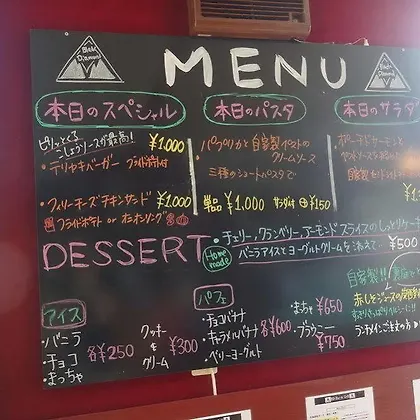 Black Diamond
MENU
Black Diamond
本日のスペシャル
ピリッとくる
こしょうソースが最高!
¥1,000
・テリヤキバーガー フライドポテト付
・フィリーチーズチキンサンド ¥1,000
フライドポテト or オニオンリング
本日のパスタ
・パプリカと自家製
クリームソース
三種のショートパスタで
単品 ¥1,000 サラダ付 ⊕ ¥150
本日のサラダ
ポーチドサーモンと
DESSERT
Home made
・チェリー、クランベリー、アーモンドスライスのしっとりケーキ
バニラアイスとヨーグルトクリームを添えて。 ¥500
アイス
・バニラ
・チョコ
・まっちゃ
各¥250
クッキー
&
クリーム
¥300
パフェ
・チョコバナナ
・キャラメルバナナ
・ベリーヨーグルト
各¥600
・まっちゃ ¥650
・ブラウニー
¥750
自家製!!
赤しそジュース
すっきりさっぱりヘルシーに!!
ランチメインご注文の方